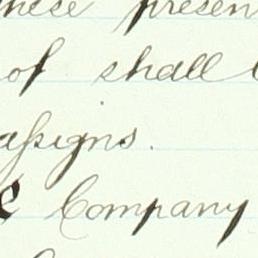 these presen
of shall
assigns.
& Company